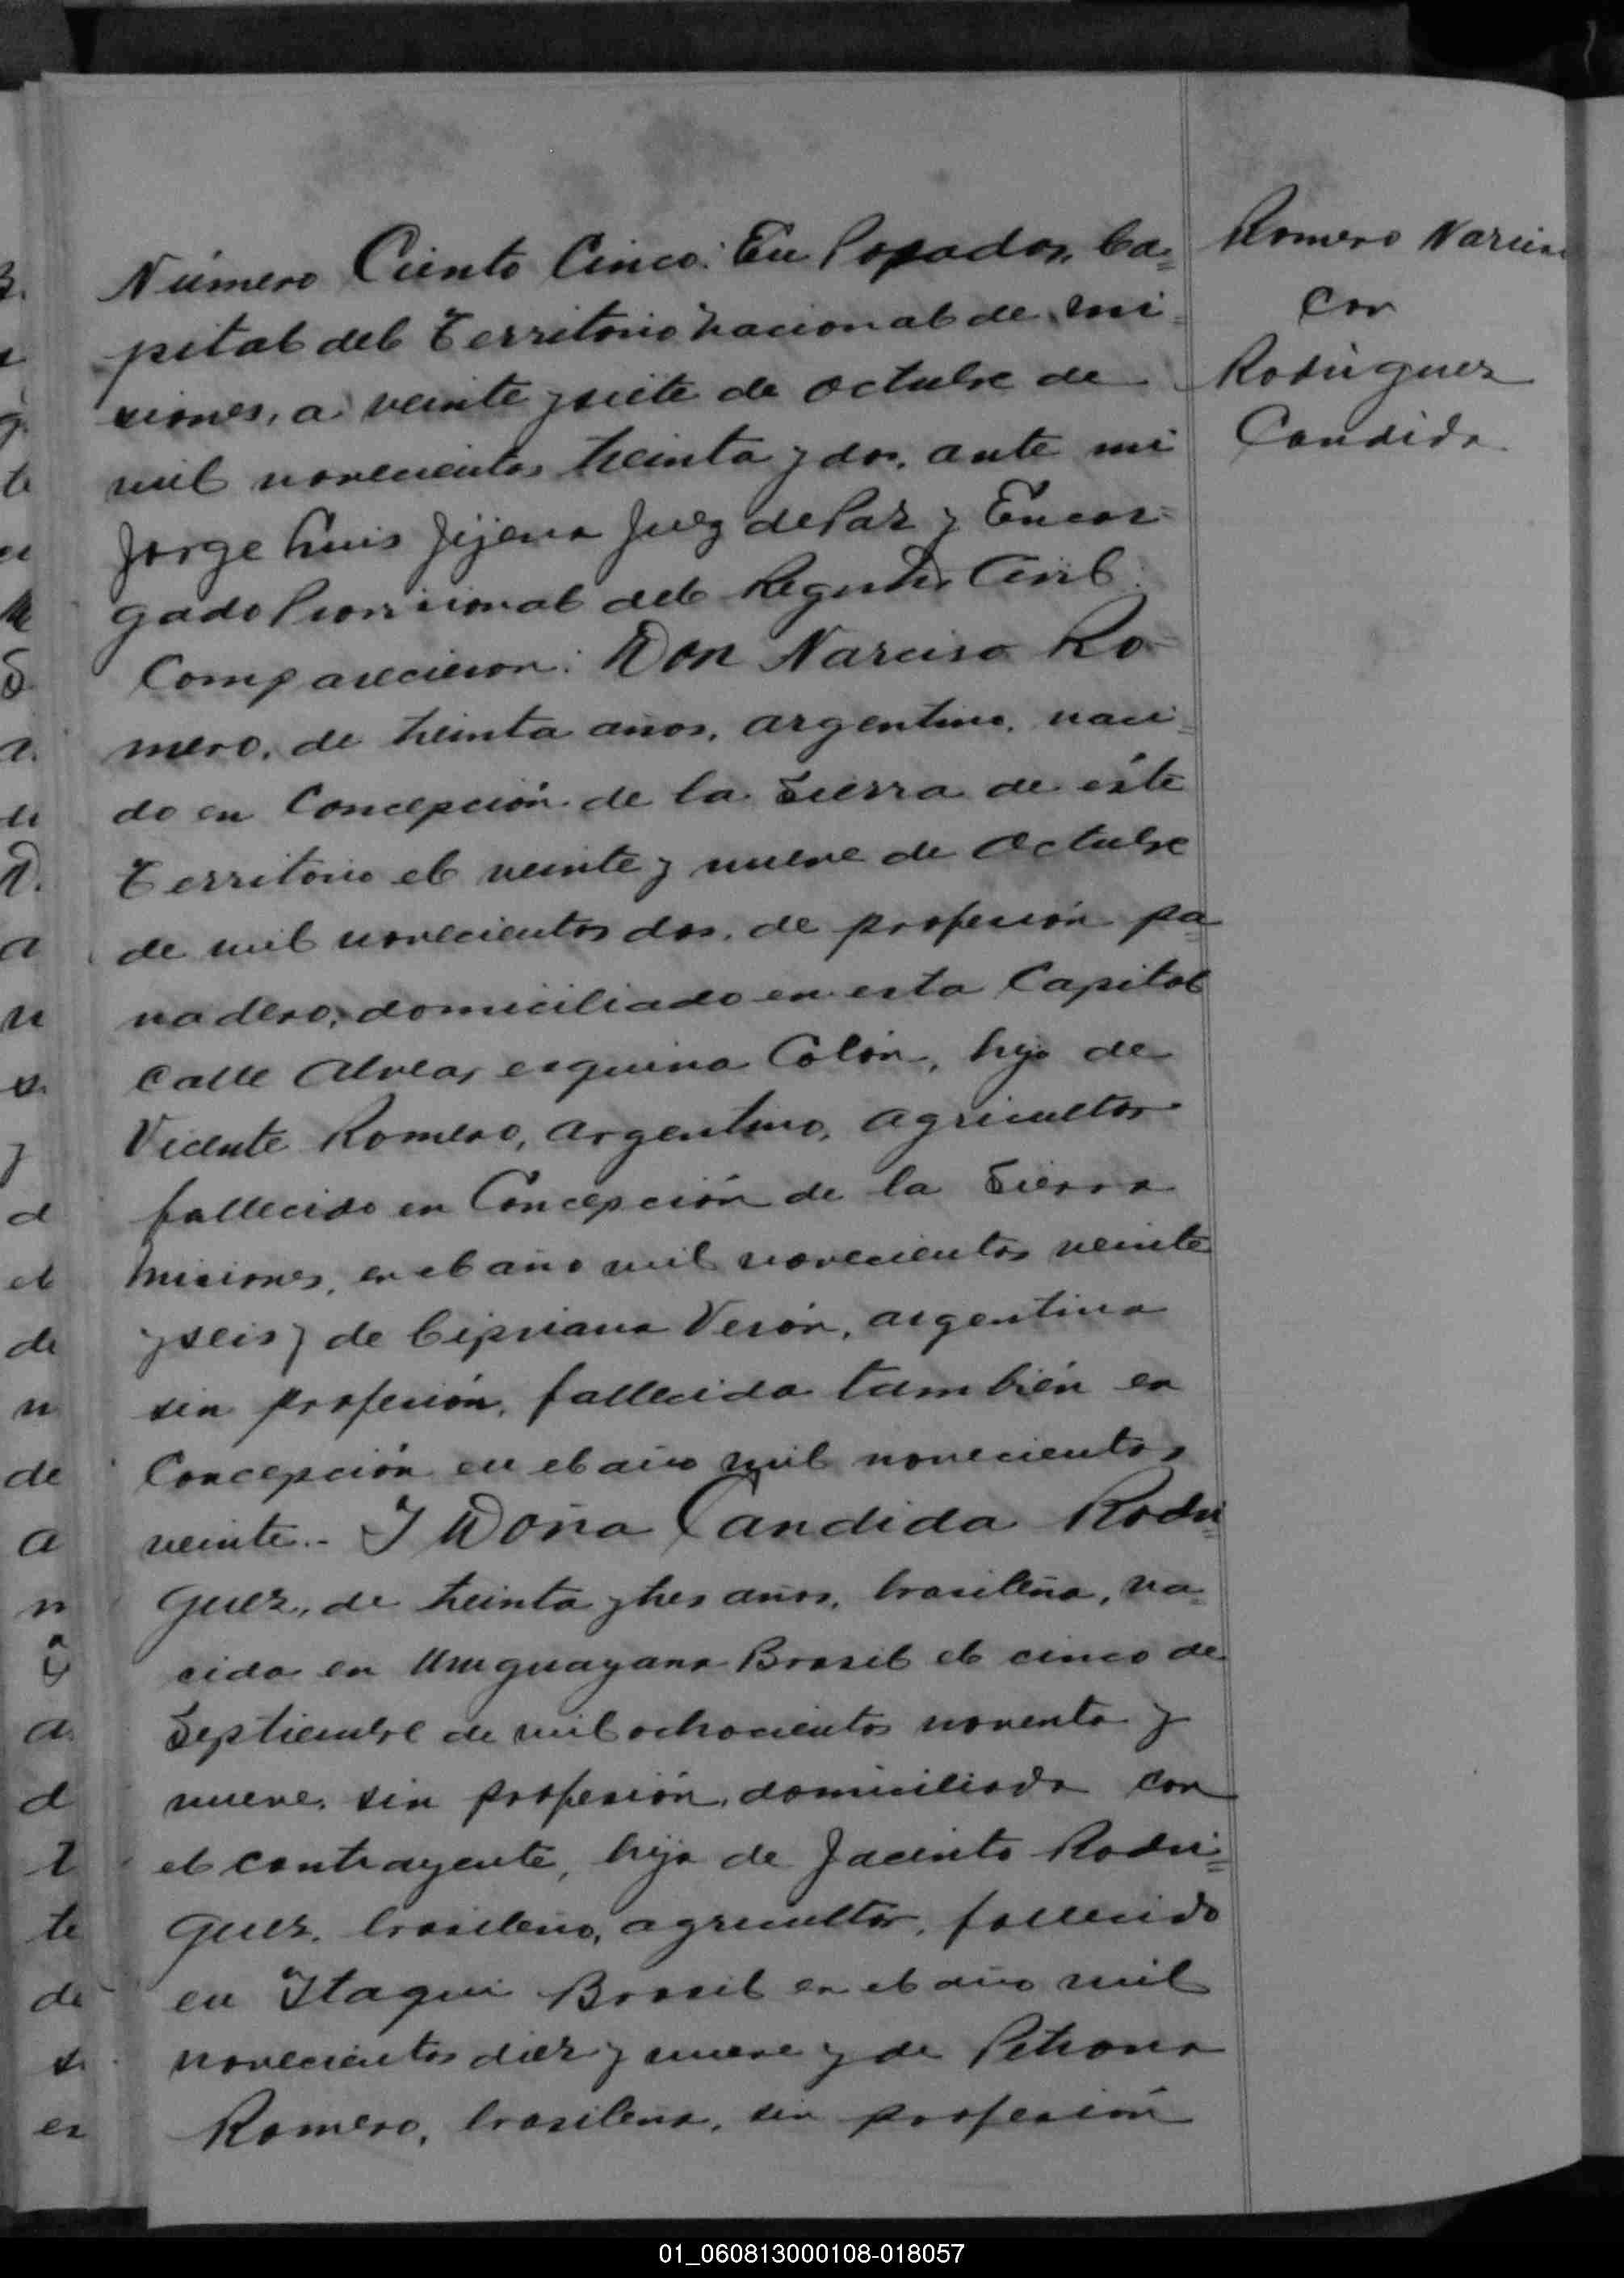 Número Ciento Cinco: En Posadas, Ca=
pital del Territorio Nacional de Mi=
siones, a veinte y siete de Octubre de
mil novecientos treinta y dos, ante mi
Jorge Luis Jijena Juez de Paz y Encar=
gado Provisional del Registro Civil.
Comparecieron: Don Narciso Ro=
mero, de treinta años, argentino, naci=
do en Concepción de la Sierra de éste
Territorio el veinte y nueve de Octubre
de mil novecientos dos, de profesión pa=
nadero, domiciliado en esta Capital
calle Alvear esquina Colón, hijo de
Vicente Romero, argentino, agricultor
fallecido en Concepción de la Sierra
Misiones, en el año mil novecientos veinte
y seis y de Cipriana Verón, argentina
sin profesión, fallecida también en
Concepción en el año mil novecientos
veinte.- Y Doña Candida Rodri=
guez, de treinta y tres años, brasileña, na=
cida en Uruguayana Brasil el cinco de
Septiembre de mil ochocientos noventa y
nueve, sin profesión, domiciliada con
el contrayente, hija de Jacinto Rodri=
guez, brasileño, agricultor, fallecido
en Itaqui Brasil en el año mil
novecientos diez y nueve y de Petrona
Romero, brasilena, sin profesión
Romero Narciso
con
Rodriguez
Candida
01_060813000108-018057